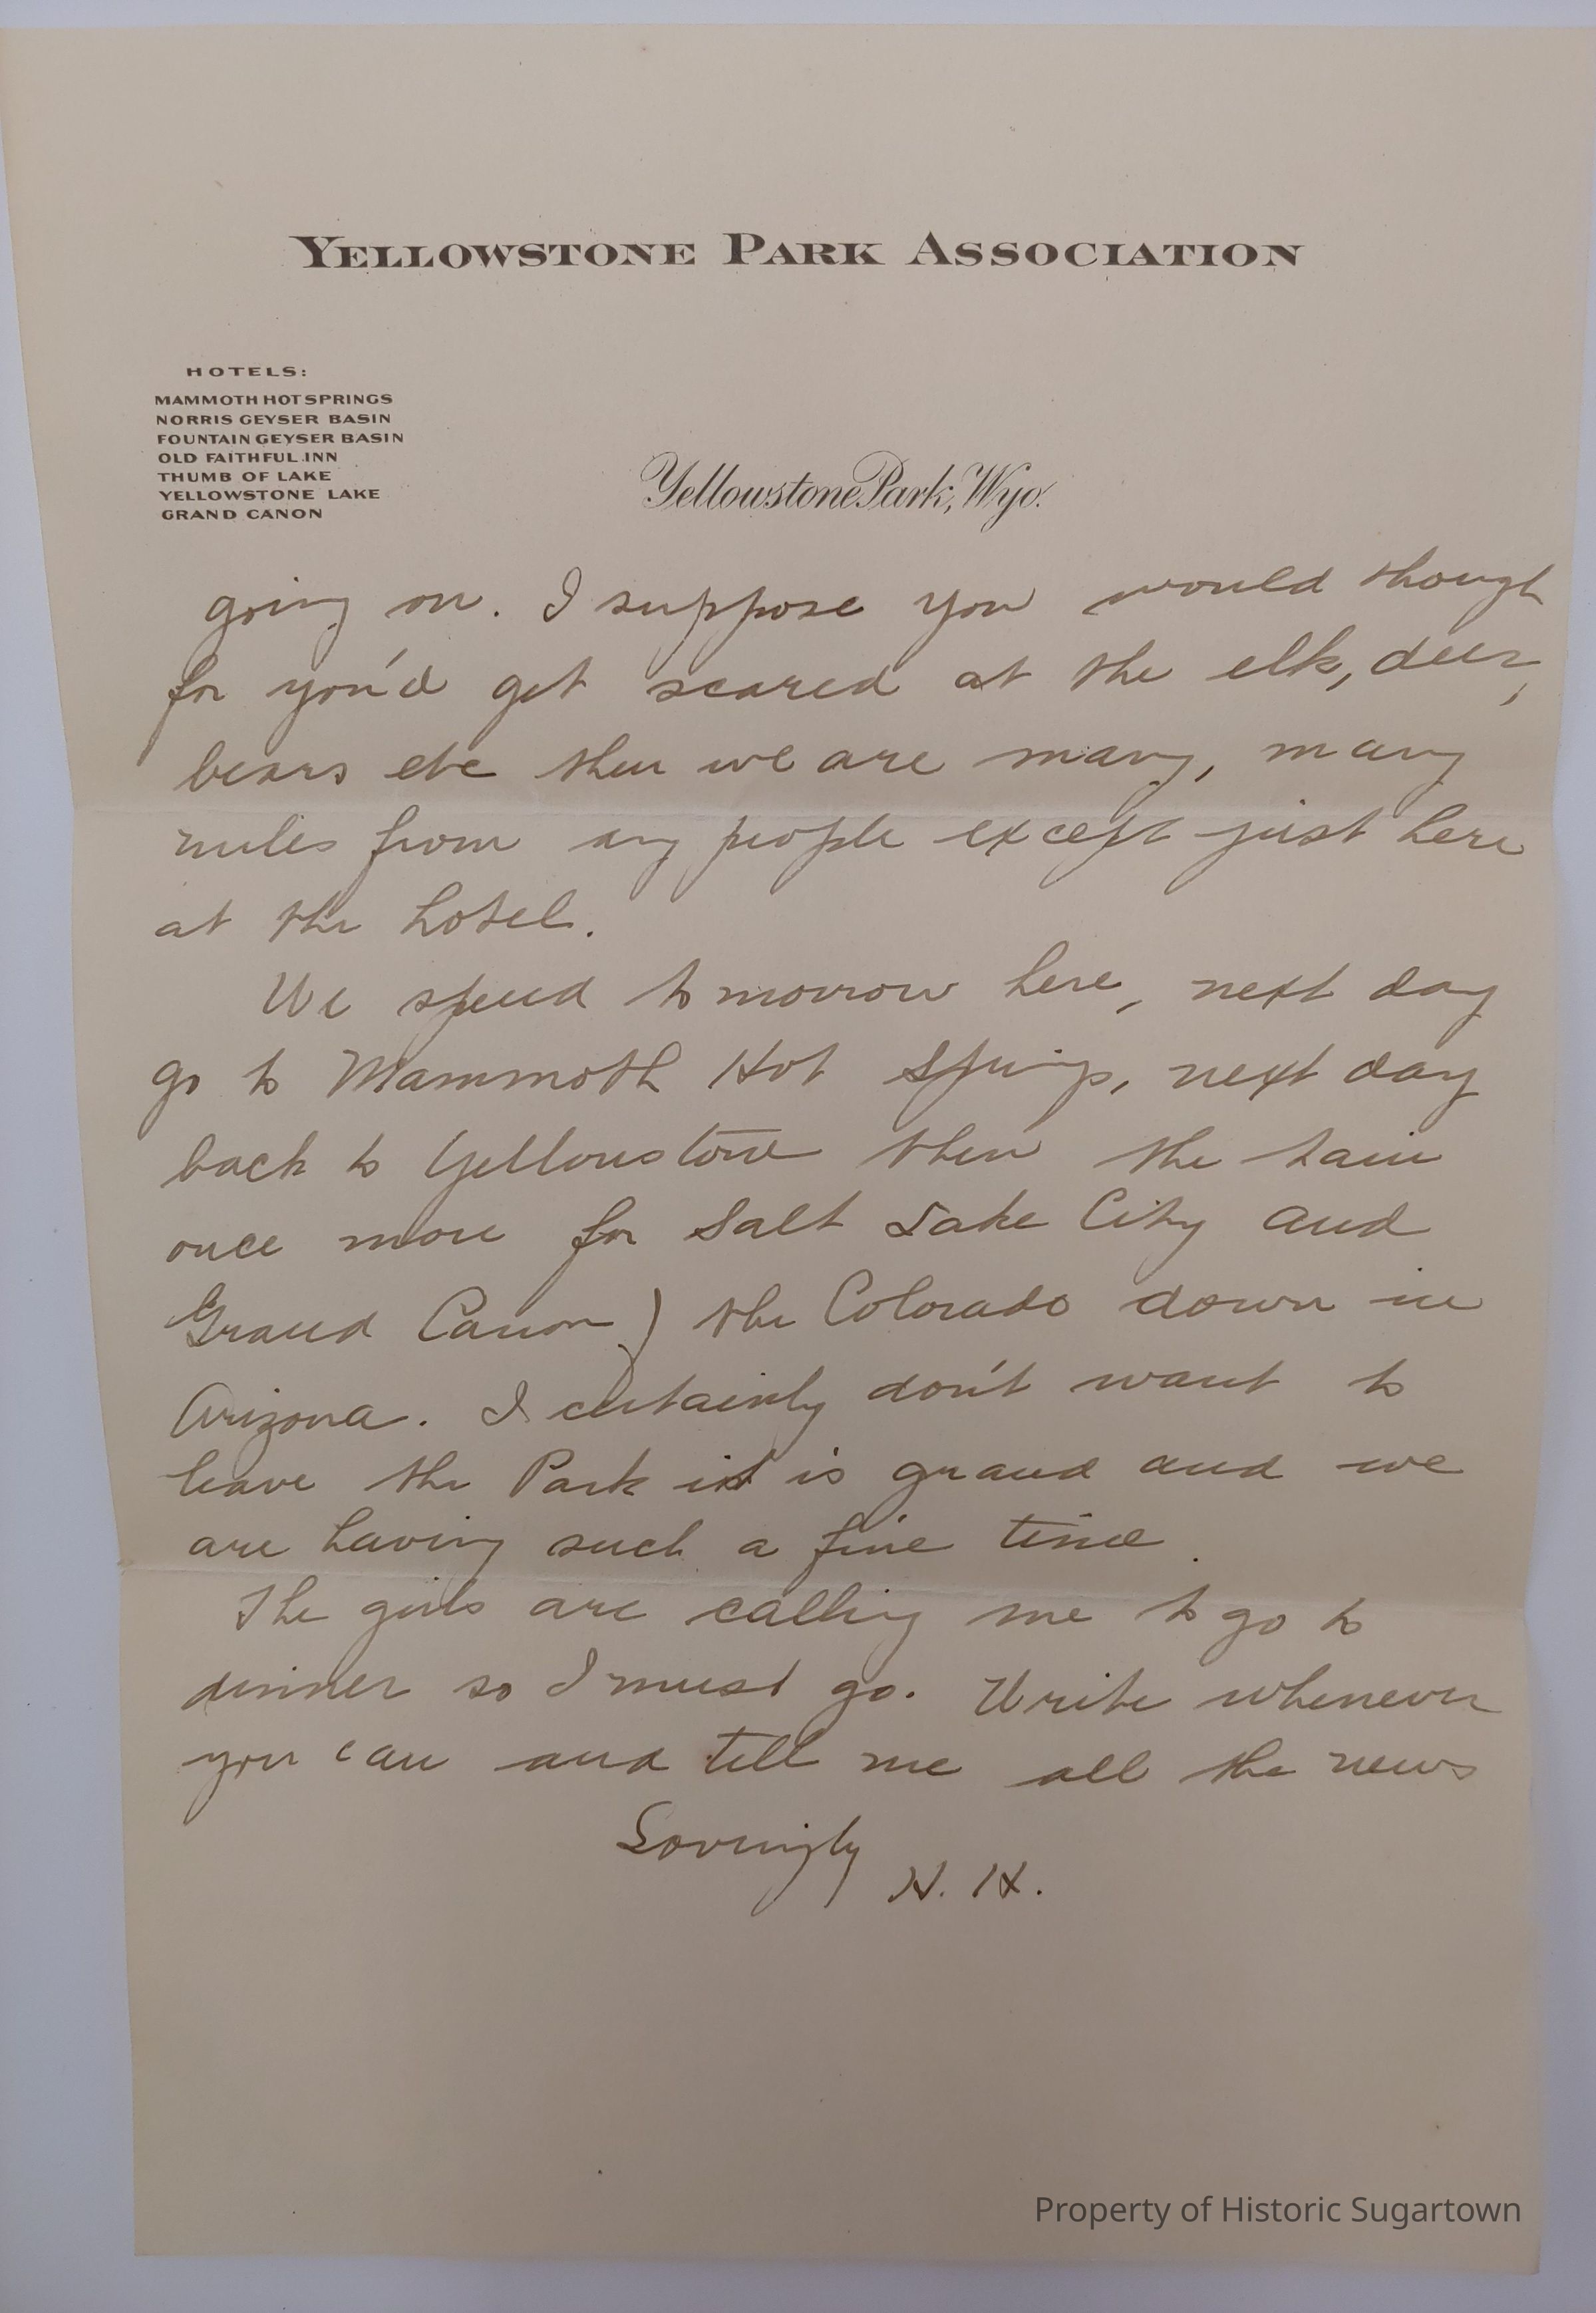 YELLOWSTONE PARK ASSOCIATION
HOTELS:
MAMMOTH HOT SPRINGS
NORRIS GEYSER BASIN
FOUNTAIN GEYSER BASIN
OLD FAITHFUL INN
THUMB OF LAKE
YELLOWSTONE LAKE
GRAND CANON
Yellowstone Park, Wyo.
going on. I suppose you would though
for you'd get scared at the elk, deer,
bears etc then we are many, many
miles from any people except just here
at the hotel.
We spend tomorrow here, next day
go to Mammoth Hot Springs, next day
back to Yellowstone then the train
once more for Salt Lake City and
Grand Canon of the Colorado down in
Arizona. I certainly don't want to
leave the Park it is grand and we
are having such a fine time.
The girls are calling me to go to
dinner so I must go. Write whenever
you can and tell me all the news
Lovingly
H. H.
Property of Historic Sugartown